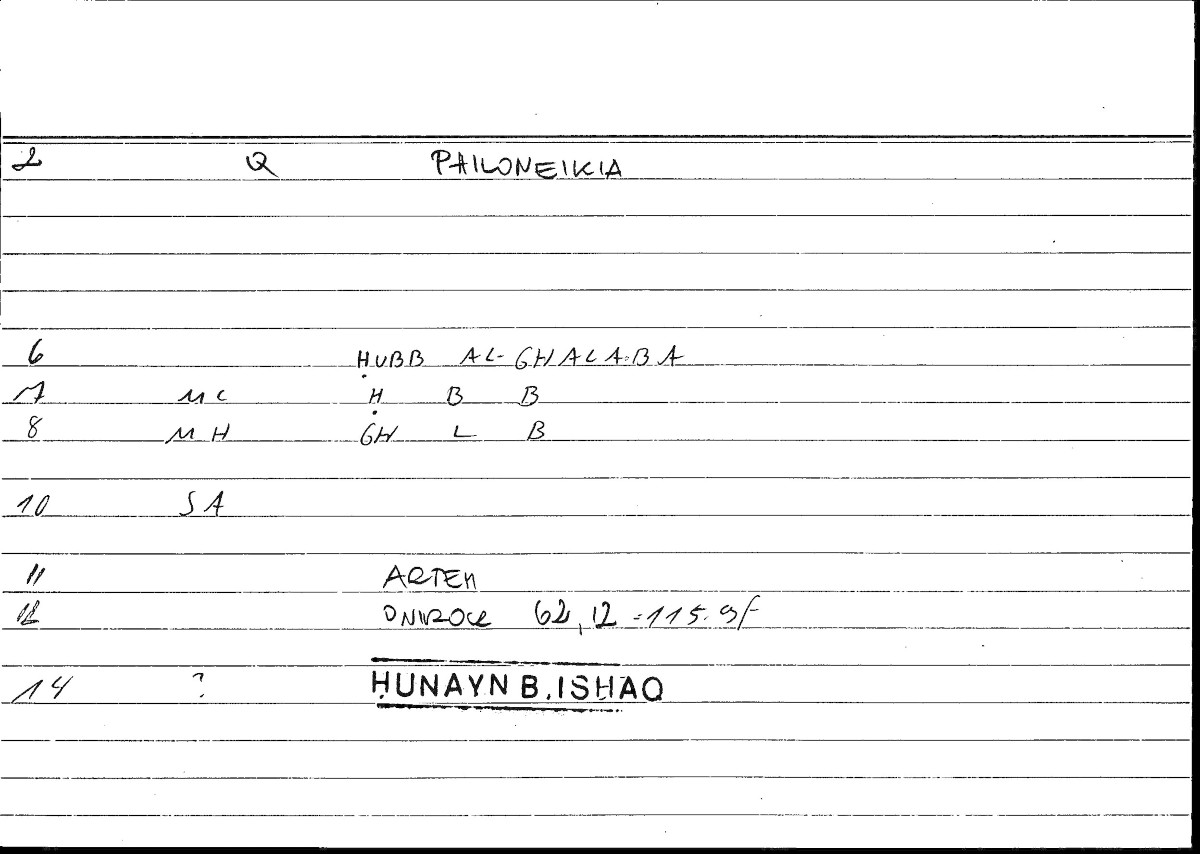 2 Q PHILONEIKIA
6 ḤUBB AL-GHALABA
7 MC Ḥ B B
8 MH GH L B
10 SA
11 ARTEM
12 ONIROCR 62,12 =115.9f
14 ? ḤUNAYN B. ISḤAQ